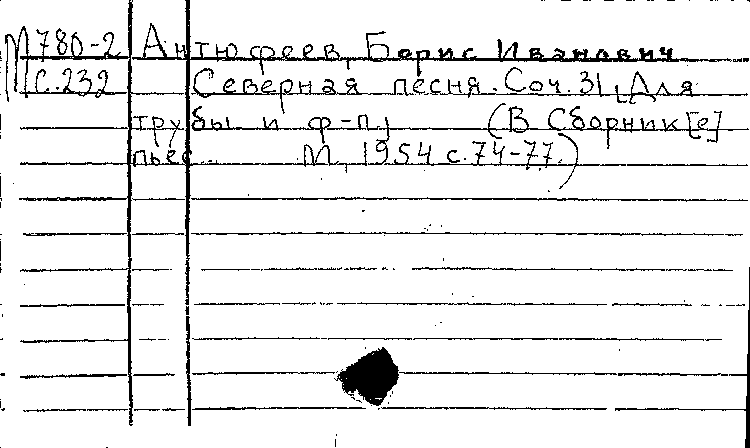 М780-2 Антюфеев, Борис Иванович
С.232 Северная песня. Соч. 31, [Для
трубы и ф-п] (В Сборник[е]
пьес... М, 1954 с. 74-77.)